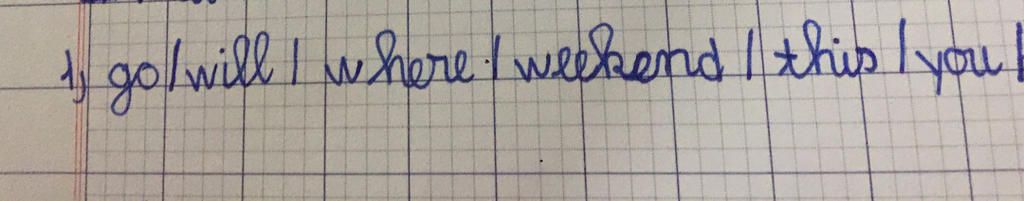 1) go/will/where/weekend/this/you/